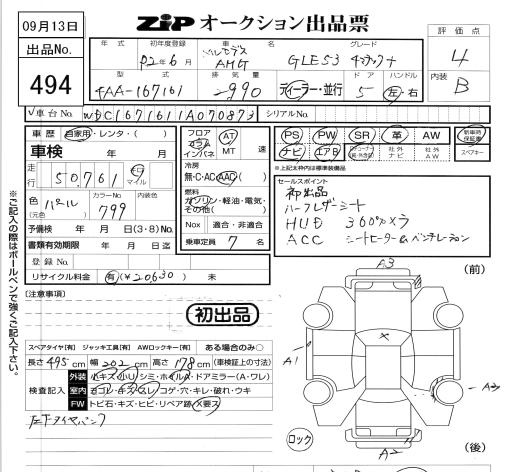 09月13日
ZIP オークション出品票
出品No.
494
評価点
4
内装
B
年式
初年度登録
車名
グレード
R2年6月
メルセデス
AMG
GLE53 4マチック+
型式
排気量
ドア
ハンドル
4AA-167161
2990
ディーラー・並行
5
左・右
車台No.
WDC1671611A070873
シリアルNo.
車歴
自家用・レンタ・( )
車検 年 月
走行
50,761
km
マイル
色
パール
(元色)
カラーNo.
799
内装色
予備検 年 月 日(3・8)No.
書類有効期限 年 月 日迄
登録No.
リサイクル料金 有(¥20,630) 未
フロア
コラム
インパネ
AT
MT
速
冷房
無・C・AC・AAC( )
燃料
ガソリン・軽油・電気・
その他( )
Nox 適合・非適合
乗車定員 7 名
PS PW SR 革 AW
新車時
保証書
ナビ エアB
社外
ナビ
社外
AW
スペアキー
*上記太枠内は標準装備品
セールスポイント
初出品
ハーフレザーシート
HUD 360°カメラ
ACC シートヒーター&ベンチレーション
[注意事項]
初出品
スペアタイヤ[有] ジャッキ工具[有] AWロックキー[有] ある場合のみ○
長さ 495 cm 幅 202 cm 高さ 178 cm (車検証上の寸法)
検査記入
外装 小キズ・小U シミ・ホイルA・ドアミラー(A・ワレ)
室内 ヨゴレ・キズ・スレ・コゲ・穴・キレ・破れ・ウキ
FW トビ石・キズ・ヒビ・リペア跡・X要ス
左下タイヤパンク
※ご記入の際はボールペンで強くご記入下さい。
(前)
A3
X
A1
A3
A2
ロック
(後)